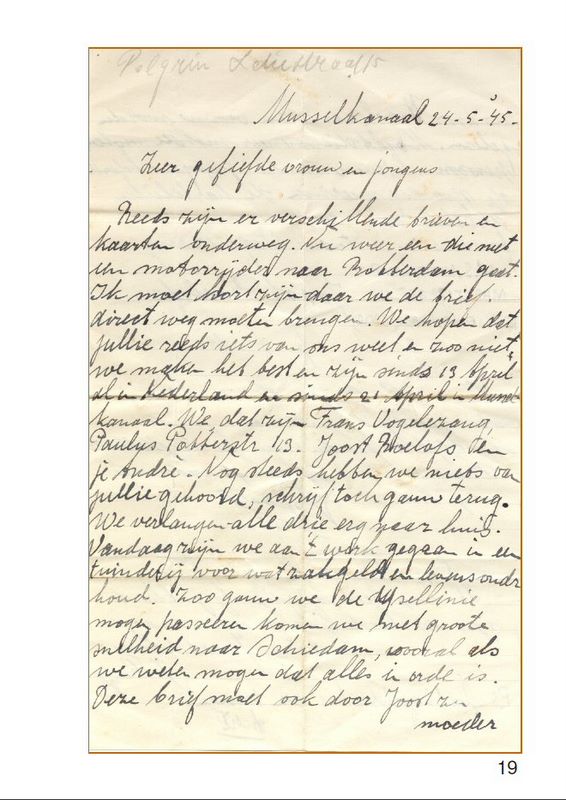 Musselkanaal 24-5-'45-
Zeer geliefde vrouw en jongens
Reeds zijn er verschillende brieven en
kaarten onderweg. Nu weer een die met
een motorrijder naar Rotterdam gaat.
Ik moet kort zijn daar we de brief
direct weg moeten brengen. We hopen dat
jullie reeds iets van ons weet en zoo niet,
we maken het best en zijn sinds 13 April
al in Nederland en sinds 21 April in
kanaal. We, dat zijn Frans Vogelezang,
Paulus Potterstr 13. Joost Roelofs, en
je Andre. Nog steeds hebben we niets van
jullie gehoord, schrijf toch gauw terug.
We verlangen alle drie erg naar huis.
Vandaag zijn we aan 't werk gegaan in een
tuinderij voor wat zakgeld en levensonder
houd. Zoo gauw we de IJsellinie
mogen passeeren komen we met groote
snelheid naar Schiedam, vooral als
we weten mogen dat alles in orde is.
Deze brief moet ook door Joost zn
moeder
19